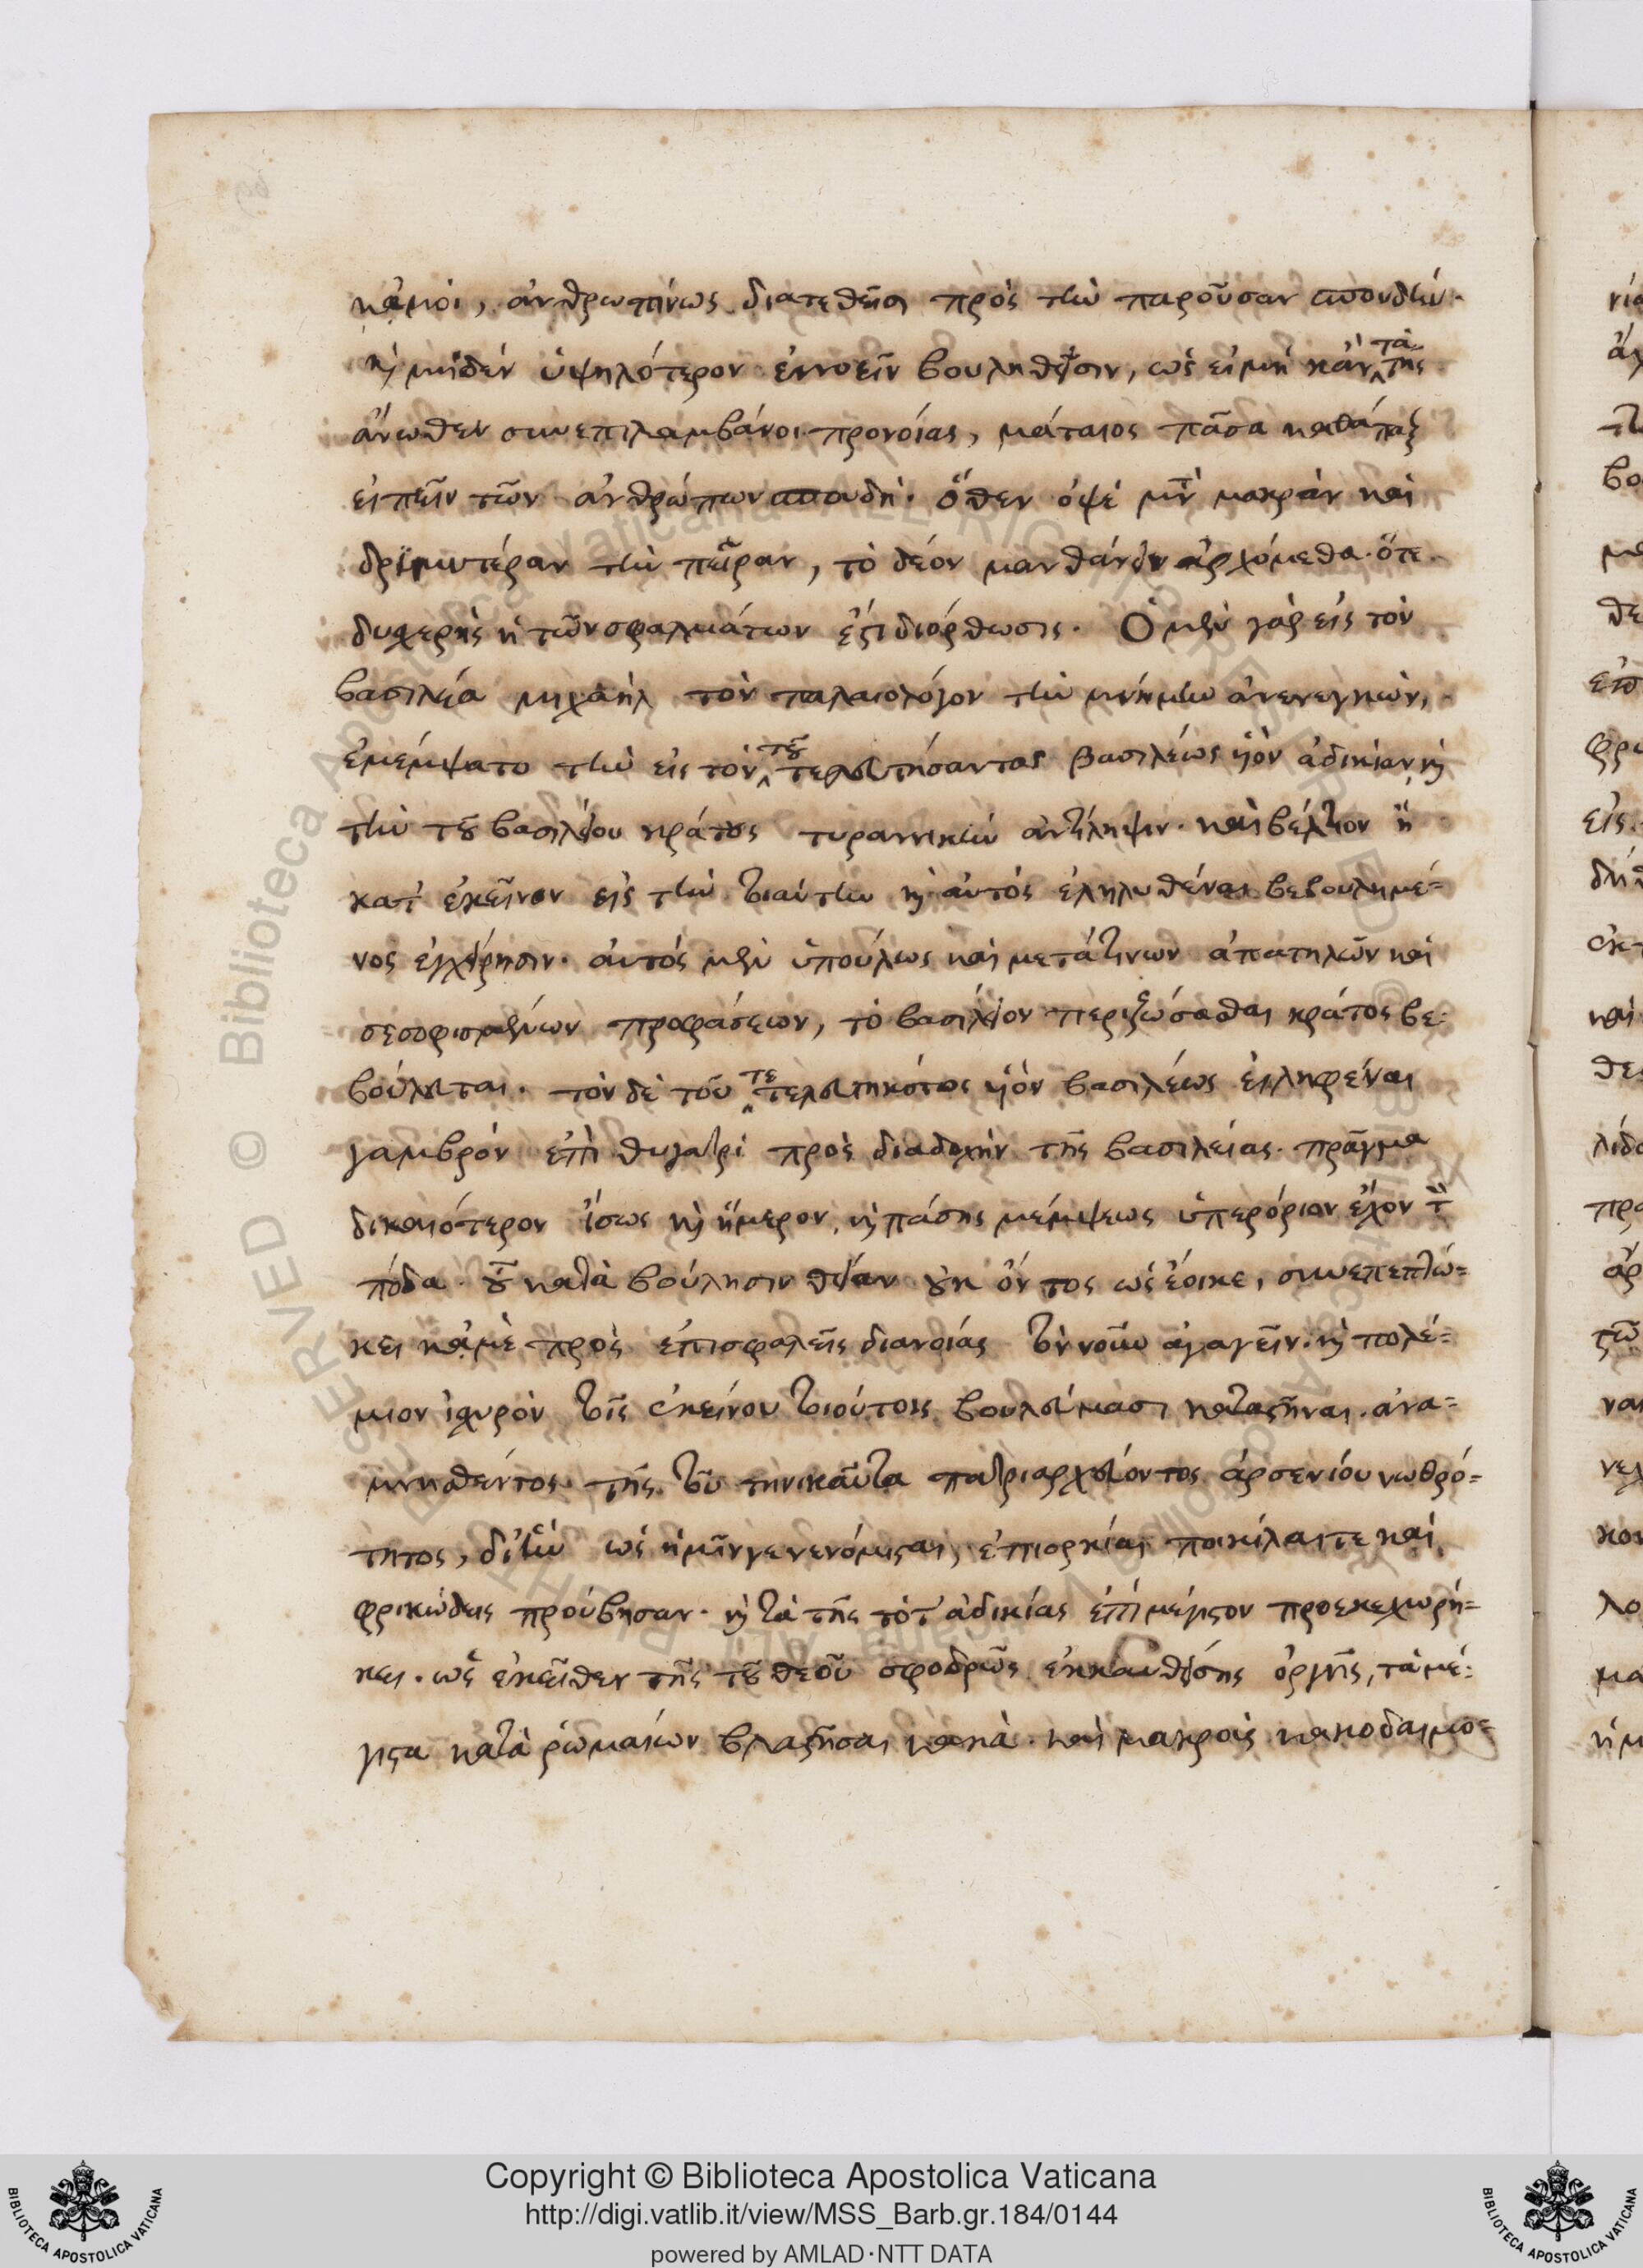 κἀμοὶ, ἀνθρωπίνως διατεθεῖσι πρὸς τὴν παροῦσαν σπουδήν.
καὶ μηδὲν ὑψηλότερον ἐννοεῖν βουληθεῖσιν, ὡς εἰ μὴ κἀν τὰ τῆς
ἄνωθεν συνεπιλαμβάνοι προνοίας, μάταιος πᾶσα καθάπαξ
εἰπεῖν τῶν ἀνθρώπων σπουδή. ὅθεν ὀψὲ μετὰ μακρὰν καὶ
δριμυτέραν τὴν πεῖραν, τὸ δέον μανθάνειν ἀρχόμεθα. ὅτε
δυχερὴς ἡ τῶν σφαλμάτων ἐστὶ διόρθωσις. Ὁ μὲν γὰρ εἰς τὸν
βασιλέα μιχαὴλ τὸν παλαιολόγον τὴν μνήμην ἀνενεγκὼν,
ἐμέμψατο τὴν εἰς τὸν τοῦ τελευτήσαντος βασιλέως υἱὸν ἀδικίαν, καὶ
τὴν τοῦ βασιλείου κράτους τυραννικὴν ἀντίληψιν. καὶ βέλτιον ἢ
κατ' ἐκεῖνον εἰς τὴν τοιαύτην καὶ αὐτὸς ἐληλυθέναι βεβουλημέ=
νος ἐγχείρησιν. αὐτὸς μὲν ὑπούλως καὶ μετά τινων ἀπατηλῶν καὶ
σεσοφισμένων προφάσεων, τὸ βασίλειον περιζώσασθαι κράτος βε=
βούλευται. τὸν δὲ τοῦ τετελευτηκότος υἱὸν βασιλέως εἰληφέναι
γαμβρὸν ἐπὶ θυγατρὶ πρὸς διαδοχὴν τῆς βασιλείας. πρᾶγμα
δικαιότερον ἴσως καὶ ἥμερον, καὶ πάσης μέμψεως ὑπερόριον ἔχον τὸν
πόδα. οὗ κατὰ βούλησιν θείαν οὐκ ὄντος ὡς ἔοικε, συνεπεπτώ=
κει κἀμὲ πρὸς ἐπισφαλεῖς διανοίας τὸν νοῦν ἀγαγεῖν. καὶ πολέ=
μιον ἰχυρὸν τοῖς ἐκείνου τοιούτοις βουλεύμασι καταστῆναι. ἀνα=
μνησθέντος τῆς τοῦ τηνικαῦτα πατριαρχεύοντος ἀρσενίου νωθρό=
τητος, δι' ἣν ὡς ἡμῖν γε νενόμισται, ἐπιορκίαι ποικίλαι τε καὶ
φρικώδεις προύβησαν. καὶ τὰ τῆς τότε ἀδικίας ἐπὶ μέγιστον προεκεχωρή=
κει. ὡς ἐκεῖθεν τῆς τοῦ θεοῦ σφοδρῶς ἐκκαυθείσης ὀργῆς, τὰ μέ=
γιστα κατὰ ῥωμαίων βλαστῆσαι κακὰ. καὶ μακρὰς κακοδαιμο=
Copyright © Biblioteca Apostolica Vaticana
http://digi.vatlib.it/view/MSS_Barb.gr.184/0144
powered by AMLAD·NTT DATA